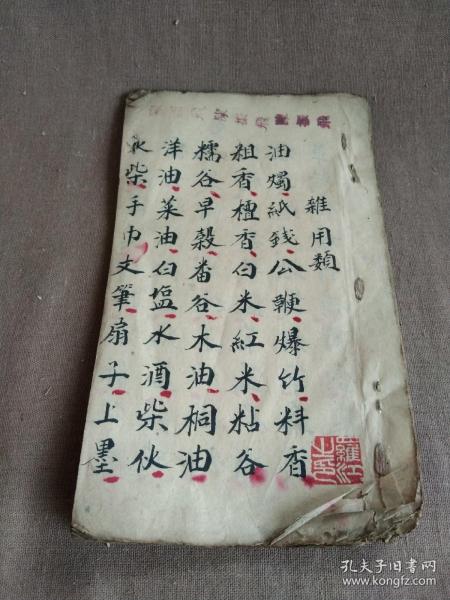 雜用類
油燭紙錢公鞭爆竹料香
粗香檀香白米紅米粘谷
糯谷早穀畨谷木油桐油
洋油菜油白塩水酒柴伙
水柴手巾文筆扇子上墨
孔夫子旧书网
www.kongfz.com